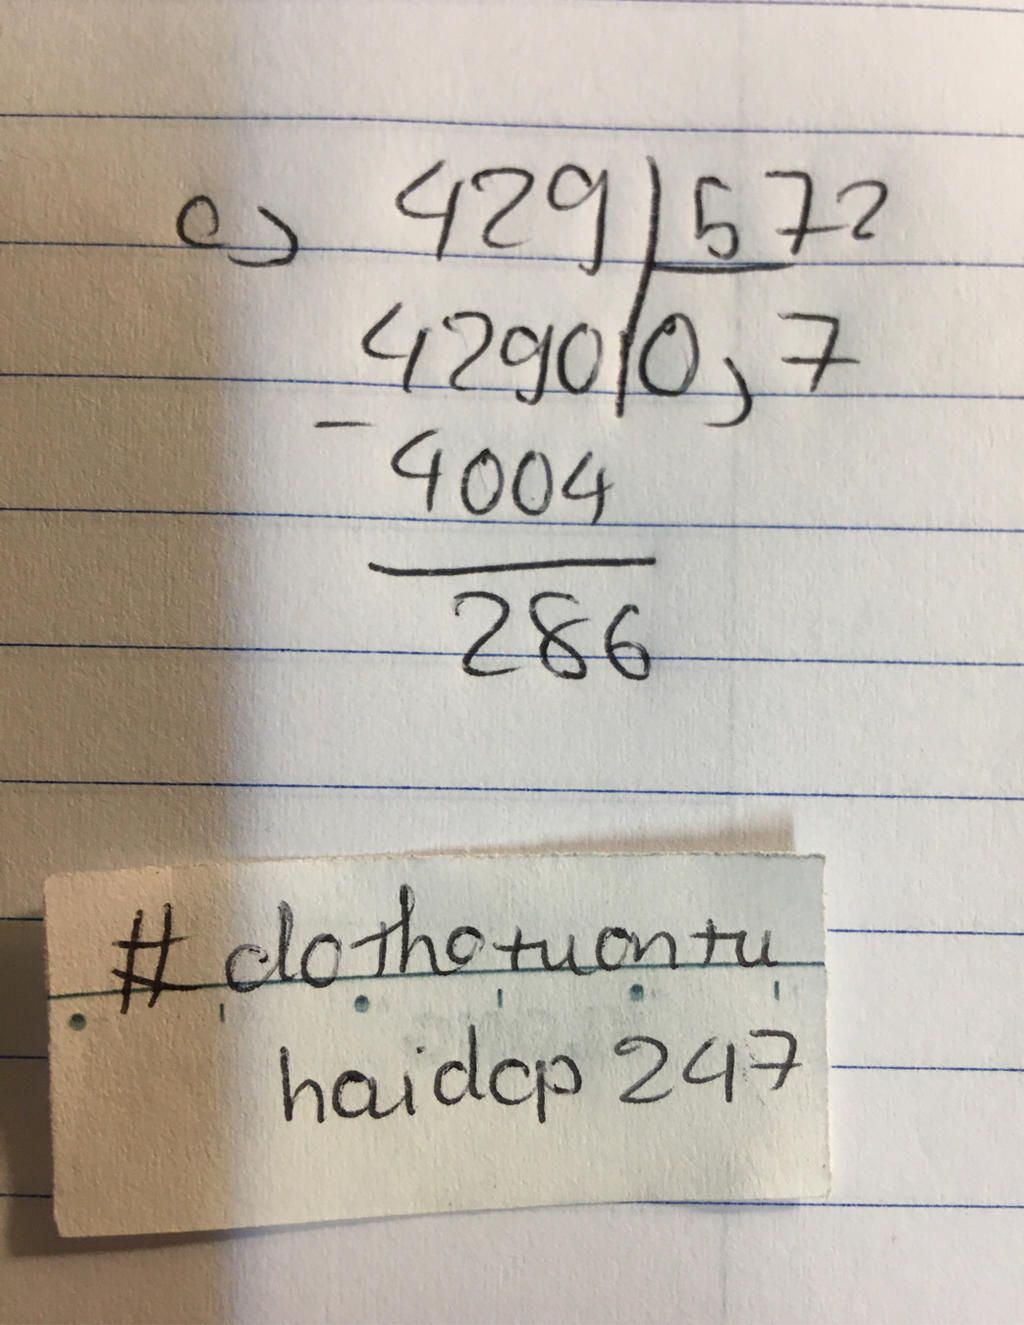 c) 429 | 572
4290 | 0,7
-
4004
286
# dothotuontu
haidcp 247